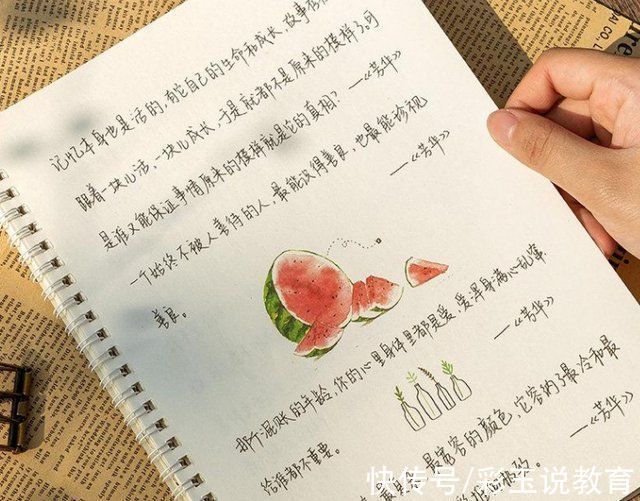 记忆本身也是活的,有它自己的生命和成长,故事
跟着一块儿活,一块儿成长,于是就都不是原来的模样了。可
是谁又能保证事情原来的模样就是它的真相? —《芳华》
一个始终不被人善待的人,最能识得善良,也最能珍视
善良。
—《芳华》
那个混账的年龄,你的心里身体里都是爱,爱浑身满心乱窜.
给谁都不重要。
—《芳华》
是宽容的颜色,它容纳了最冷和最
的。
—《芳华》
快传号/彩玉说教育